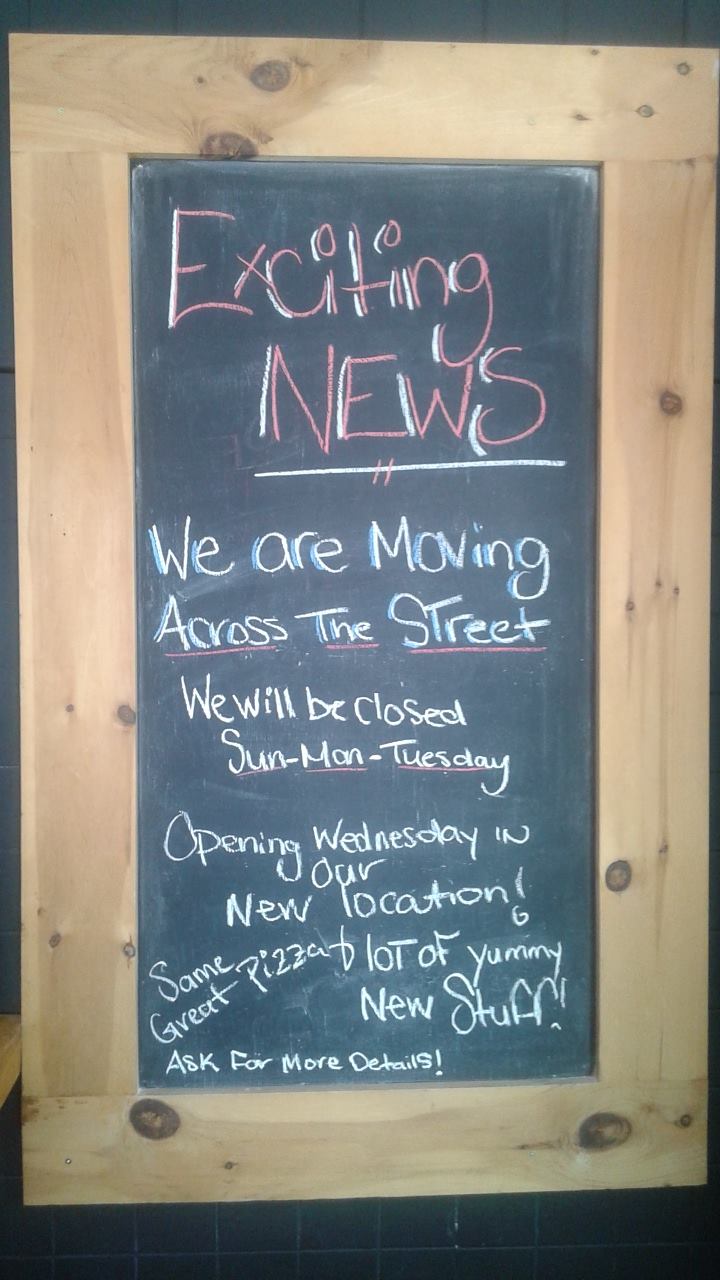 Exciting
NEWS
We are Moving
Across The Street
We will be closed
Sun-Mon-Tuesday
Opening Wednesday in
our
New location!
Same Great Pizza + lot of yummy
New Stuff!
Ask For More Details!